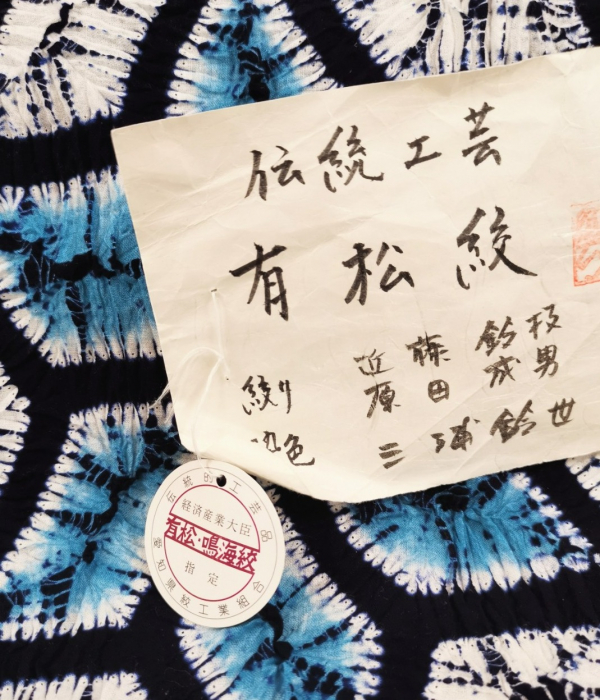 伝統工芸
有松絞
絞り 近藤鈴枝
原田成男
染色 三浦鈴世
伝統的工芸品
経済産業大臣
有松・鳴海絞
指定
愛知県絞工業組合